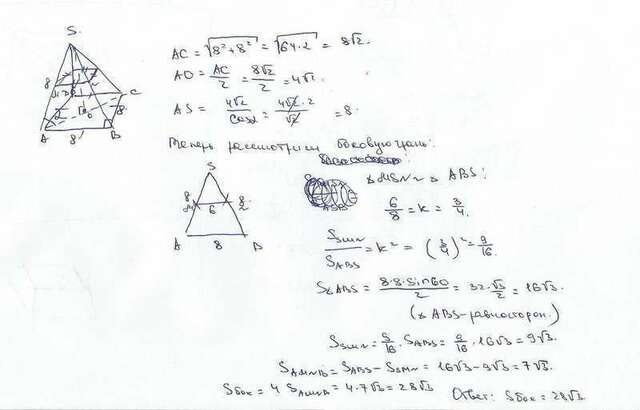 S
8
A
B
C
8
8
AC = √8²+8² = √64·2 = 8√2.
AO = AC/2 = 8√2/2 = 4√2.
AS = 4√2/cosα = 4√2·2/√2 = 8.
Теперь рассмотрим боковую грань:
S
8 M 6 N 8
A 8 B
△MSN ~ △ABS:
6/8 = k = 3/4.
S_SMN/S_ABS = k² = (3/4)² = 9/16.
S△ABS = 8·8·sin60/2 = 32·√3/2 = 16√3.
(△ABS-равносторон.)
S_SMN = 9/16·S_ABS = 9/16·16√3 = 9√3.
S_AMNB = S_ABS − S_SMN = 16√3 − 9√3 = 7√3.
Sбок = 4 S_AMNB = 4·7√3 = 28√3 Ответ: Sбок = 28√3.